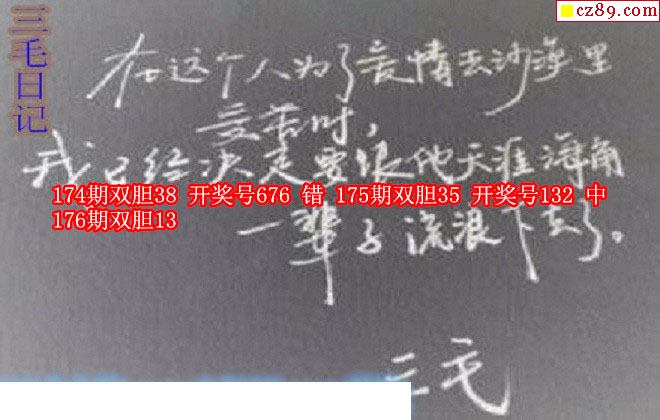 cz89.com
三毛日记
在这个人为了爱情去沙漠里
受苦时,
我已经决定要跟他天涯海角
174期双胆38 开奖号676 错 175期双胆35 开奖号132 中
176期双胆13
一辈子流浪下去了。
三毛